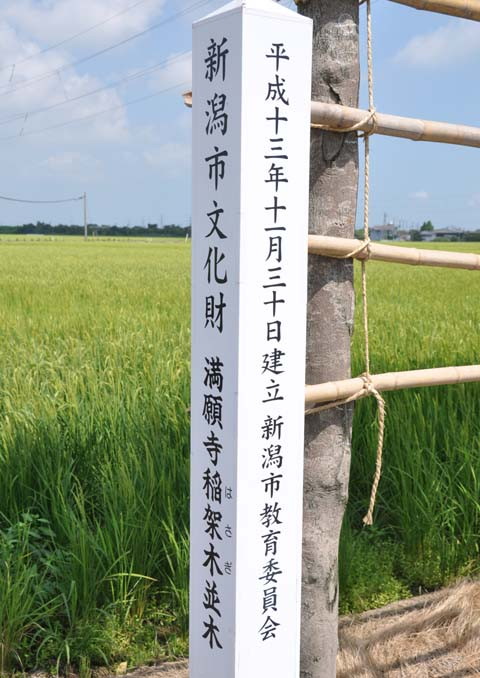 新潟市文化財 満願寺稲架木並木
はさぎ
平成十三年十一月三十日建立 新潟市教育委員会